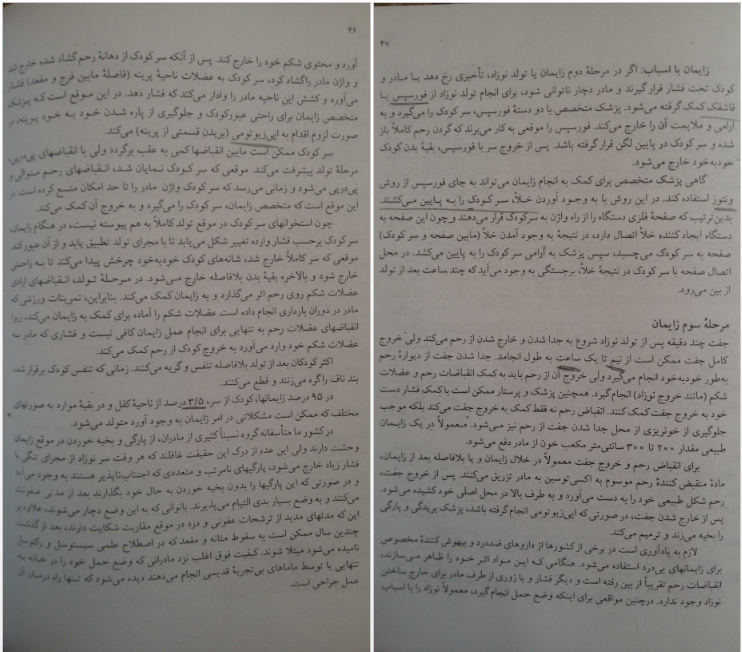 ۲۶
آورد و محتوی شکم خود را خارج کند. پس از آنکه سر کودک از دهانهٔ رحم گشاد شده خارج شد
و واژن مادر را گشاد کرد، سر کودک به عضلات ناحیهٔ پرینه (فاصلهٔ مابین فرج و مقعد) فشار
می‌آورد و کشش این ناحیه مادر را وادار می‌کند که فشار دهد. در این موقع است که پزشک
متخصص زایمان برای راحتی عبور کودک و جلوگیری از پاره شدن خود به خود پرینه، در
صورت لزوم اقدام به اپی‌زیوتومی (بریدن قسمتی از پرینه) می‌کند.
سر کودک ممکن است مابین انقباضها کمی به عقب برگردد ولی با انقباضهای پی‌درپی،
مرحلهٔ تولد پیشرفت می‌کند. موقعی که سر کودک نمایان شد، انقباضهای رحم متوالی و
پی‌درپی می‌شود و زمانی می‌رسد که سر کودک واژن مادر را تا حد امکان متسع کرده است. در
این موقع است که متخصص زایمان، سر کودک را می‌گیرد و به خروج آن کمک می‌کند.
چون استخوانهای سر کودک در موقع تولد کاملاً به هم پیوسته نیست، در هنگام زایمان،
سر کودک برحسب فشار وارده تغییر شکل می‌یابد تا با مجرای تولد تطبیق یابد و از آن عبور کند.
موقعی که سر کاملاً خارج شد، شانه‌های کودک خودبه‌خود چرخش پیدا می‌کند تا به راحتی
خارج شود و بالاخره بقیهٔ بدن بلافاصله خارج می‌شود. در مرحلهٔ تولد، انقباضهای ارادی
عضلات شکم روی رحم اثر می‌گذارد و به زایمان کمک می‌کند. بنابراین، تمرینات ورزشی که
مادر در دوران بارداری انجام داده است عضلات شکم را آماده برای کمک به زایمان می‌کند، زیرا
انقباضهای عضلات رحم به تنهایی برای انجام عمل زایمان کافی نیست و فشاری که مادر به
عضلات شکم خود وارد می‌آورد به خروج کودک از رحم کمک می‌کند.
اکثر کودکان بعد از تولد بلافاصله تنفس و گریه می‌کنند. زمانی که تنفس کودک برقرار شد،
بند ناف را گره می‌زنند و قطع می‌کنند.
در ۹۵ درصد زایمانها، کودک از سر، ۳/۵ درصد از ناحیهٔ کفل و در بقیهٔ موارد به صورتهای
مختلف که ممکن است مشکلاتی در امر زایمان به وجود آورد متولد می‌شود.
در کشور ما متأسفانه گروه نسبتاً کثیری از مادران، از پارگی و بخیه خوردن در موقع زایمان
وحشت دارند ولی این عده از درک این حقیقت غافلند که هر وقت سر نوزاد از مجرای تنگی با
فشار زیاد خارج می‌شود، پارگیهای نامرتب و متعددی که اجتناب‌ناپذیر هستند به وجود می‌آید
و در صورتی که این پارگیها را بدون بخیه خوردن به حال خود بگذارند بعد از مدتی عفونت
می‌کنند و به وضع بسیار بدی التیام می‌پذیرند. بانوانی که به این وضع دچار می‌شوند، علاوه بر
این که مدتهای مدید از ترشحات عفونی و درد در موقع مقاربت شکایت دارند، بعد از گذشت
چندین سال ممکن است به سقوط مثانه و مقعد که در اصطلاح علمی سیستوسل و رکتوسل
نامیده می‌شود مبتلا شوند. کیفیت فوق اغلب نزد مادرانی که وضع حمل خود را در خانه به
تنهایی یا توسط ماماهای بی‌تجربهٔ قدیمی انجام می‌دهند دیده می‌شود که تنها راه درمان آن
عمل جراحی است.
۲۷
زایمان با اسباب: اگر در مرحلهٔ دوم زایمان یا تولد نوزاد، تأخیری رخ دهد یا مادر و
کودک تحت فشار قرار گیرند و مادر دچار ناتوانی شود، برای انجام تولد نوزاد از فورسپس یا
قاشقک کمک گرفته می‌شود. پزشک متخصص با دو دستهٔ فورسپس، سر کودک را می‌گیرد و به
آرامی و ملایمت آن را خارج می‌کند. فورسپس را موقعی به کار می‌برند که گردن رحم کاملاً باز
شده و سر کودک در پایین لگن قرار گرفته باشد. پس از خروج سر با فورسپس، بقیهٔ بدن کودک
خودبه‌خود خارج می‌شود.
گاهی پزشک متخصص برای کمک به انجام زایمان می‌تواند به جای فورسپس از روش
ونتوز استفاده کند. در این روش با به وجود آوردن خلأ، سر کودک را به پایین می‌کشند.
بدین‌ترتیب که صفحهٔ فلزی دستگاه را از راه واژن به سر کودک قرار می‌دهند و چون این صفحه به
دستگاه ایجاد کننده خلأ اتصال دارد، در نتیجهٔ به وجود آمدن خلأ (مابین صفحه و سر کودک)
صفحه به سر کودک می‌چسبد، سپس پزشک به آرامی سر کودک را به پایین می‌کشد. در محل
اتصال صفحه با سر کودک در نتیجهٔ خلأ، برجستگی به وجود می‌آید که چند ساعت بعد از تولد
از بین می‌رود.
مرحلهٔ سوم زایمان
جفت چند دقیقه پس از تولد نوزاد شروع به جدا شدن و خارج شدن از رحم می‌کند ولی خروج
کامل جفت ممکن است از نیم تا یک ساعت به طول انجامد. جدا شدن جفت از دیوارهٔ رحم
به‌طور خودبه‌خود انجام می‌گیرد ولی خروج آن از رحم باید به کمک انقباضات رحم و عضلات
شکم (مانند خروج نوزاد) انجام گیرد. همچنین پزشک و پرستار ممکن است با کمک فشار دست
خود به خروج جفت کمک کنند. انقباض رحم نه فقط کمک به خروج جفت می‌کند بلکه موجب
جلوگیری از خونریزی از محل جدا شدن جفت از رحم نیز می‌شود. معمولاً در یک زایمان
طبیعی مقدار ۲۰۰ تا ۳۰۰ سانتی‌متر مکعب خون از مادر دفع می‌شود.
برای انقباض رحم و خروج جفت معمولاً در خلال زایمان و یا بلافاصله بعد از زایمان،
مادهٔ منقبض کنندهٔ رحم موسوم به اکسی‌توسین به مادر تزریق می‌کنند. پس از خروج جفت،
رحم شکل طبیعی خود را به دست می‌آورد و به طرف بالا در محل اصلی خود کشیده می‌شود.
پس از خارج شدن جفت، در صورتی که اپی‌زیوتومی انجام گرفته باشد، پزشک بریدگی و پارگی
را بخیه می‌زند و ترمیم می‌کند.
لازم به یادآوری است در برخی از کشورها از داروهای ضددرد و بیهوش کنندهٔ مخصوص
برای زایمانهای بی‌درد استفاده می‌شود. هنگامی که این مواد اثر خود را ظاهر می‌سازند،
انقباضات رحم تقریباً از بین رفته است و دیگر فشار و یا زوری از طرف مادر برای خارج ساختن
نوزاد وجود ندارد. در چنین مواقعی برای اینکه وضع حمل انجام گیرد، معمولاً نوزاد را با اسباب